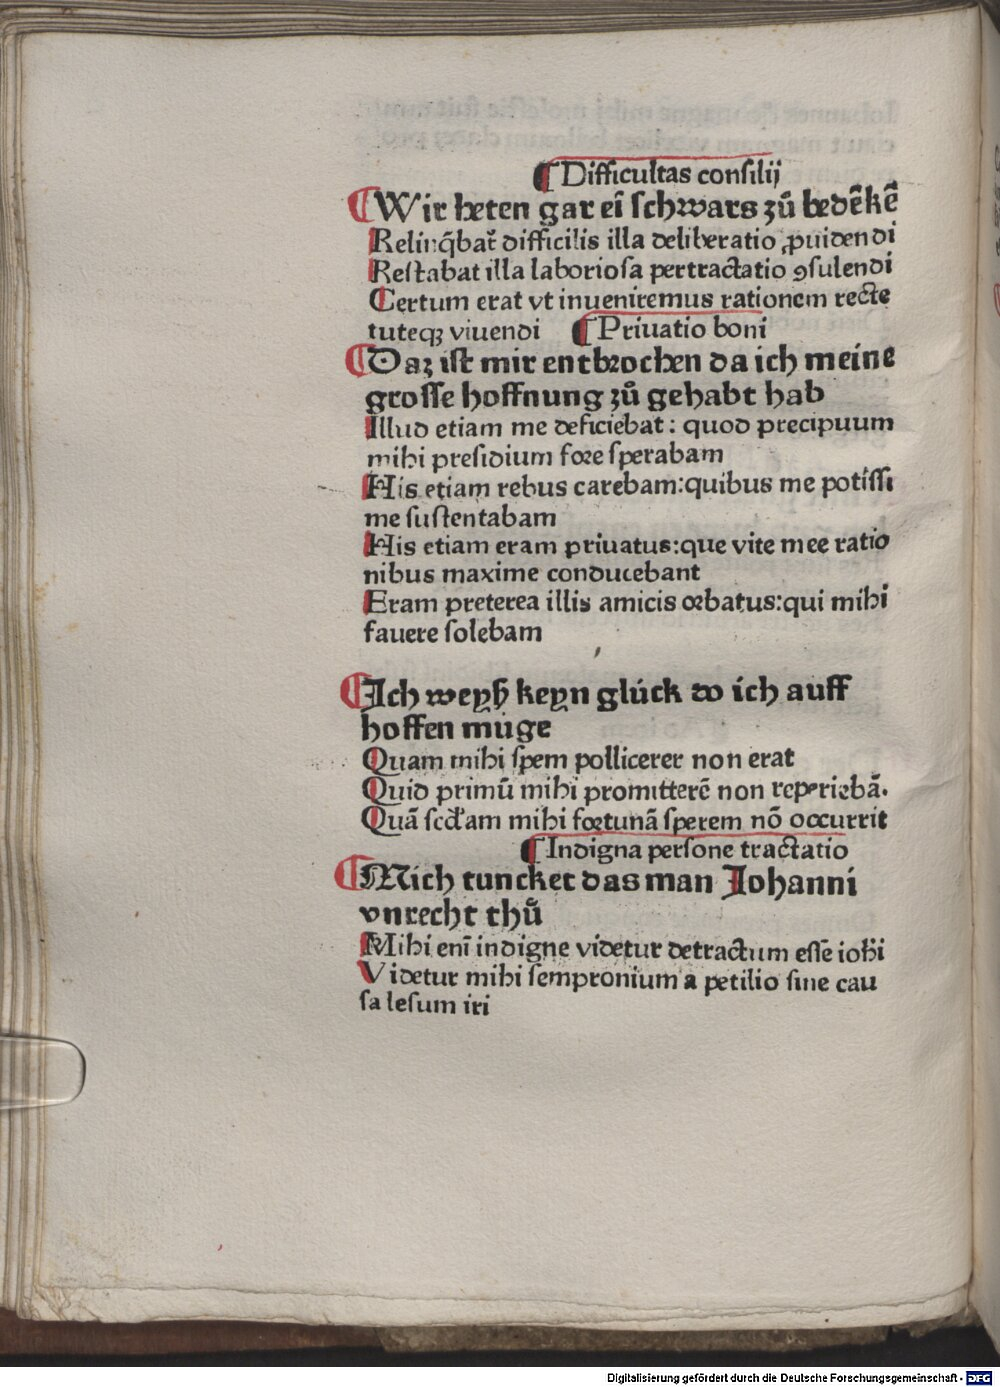 ¶Difficultas consilij
¶Wir heten gar eī schwars zů bedēkē
Relinq̄bat᷑ difficilis illa deliberatio ꝓuidendi
Restabat illa laboriosa pertractatio ꝯsulendi
Certum erat vt inueniremus rationem recte
tuteqꝫ viuendi ¶Priuatio boni
¶Daz ist mir entbrochen da ich meine
grosse hoffnung zů gehabt hab
Illud etiam me deficiebat: quod precipuum
mihi presidium fore sperabam
His etiam rebus carebam:quibus me potissi
me sustentabam
His etiam eram priuatus:que vite mee ratio
nibus maxime conducebant
Eram preterea illis amicis orbatus:qui mihi
fauere solebam
¶Ich weyß keyn glúck wo ich auff
hoffen muge
Quam mihi spem pollicerer non erat
Quid primū mihi promitterē non reperiebā.
Quā scd̄am mihi fortunā sperem nō occurrit
¶Indigna persone tractatio
¶Mich tuncket das man Iohanni
vnrecht thů
Mihi enī indigne videtur detractum esse ioh̄i
Videtur mihi sempronium a petilio sine cau
sa lesum iri
Digitalisierung gefördert durch die Deutsche Forschungsgemeinschaft - DFG